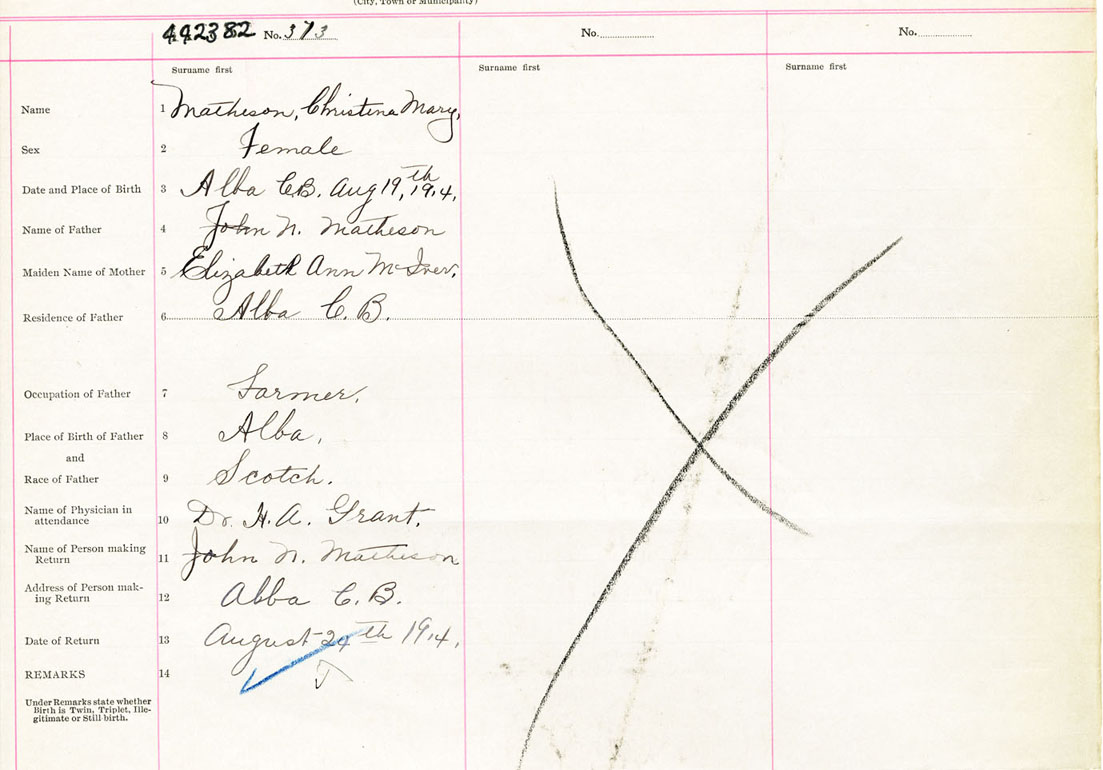 (City, Town or Municipality)
442382 No. 373 No. No.
Surname first Surname first Surname first
Name 1 Matheson, Christena Mary,
Sex 2 Female
Date and Place of Birth 3 Alba C.B. Aug 19,th 1914,
Name of Father 4 John N. Matheson
Maiden Name of Mother 5 Elizabeth Ann McIver,
Residence of Father 6 Alba C. B.
Occupation of Father 7 Farmer,
Place of Birth of Father 8 Alba,
and
Race of Father 9 Scotch.
Name of Physician in
attendance 10 Dr. H. A. Grant.
Name of Person making
Return 11 John N. Matheson
Address of Person mak-
ing Return 12 Abba C. B.
Date of Return 13 August 24th 1914,
REMARKS 14
Under Remarks state whether
Birth is Twin, Triplet, Ille-
gitimate or Still-birth.